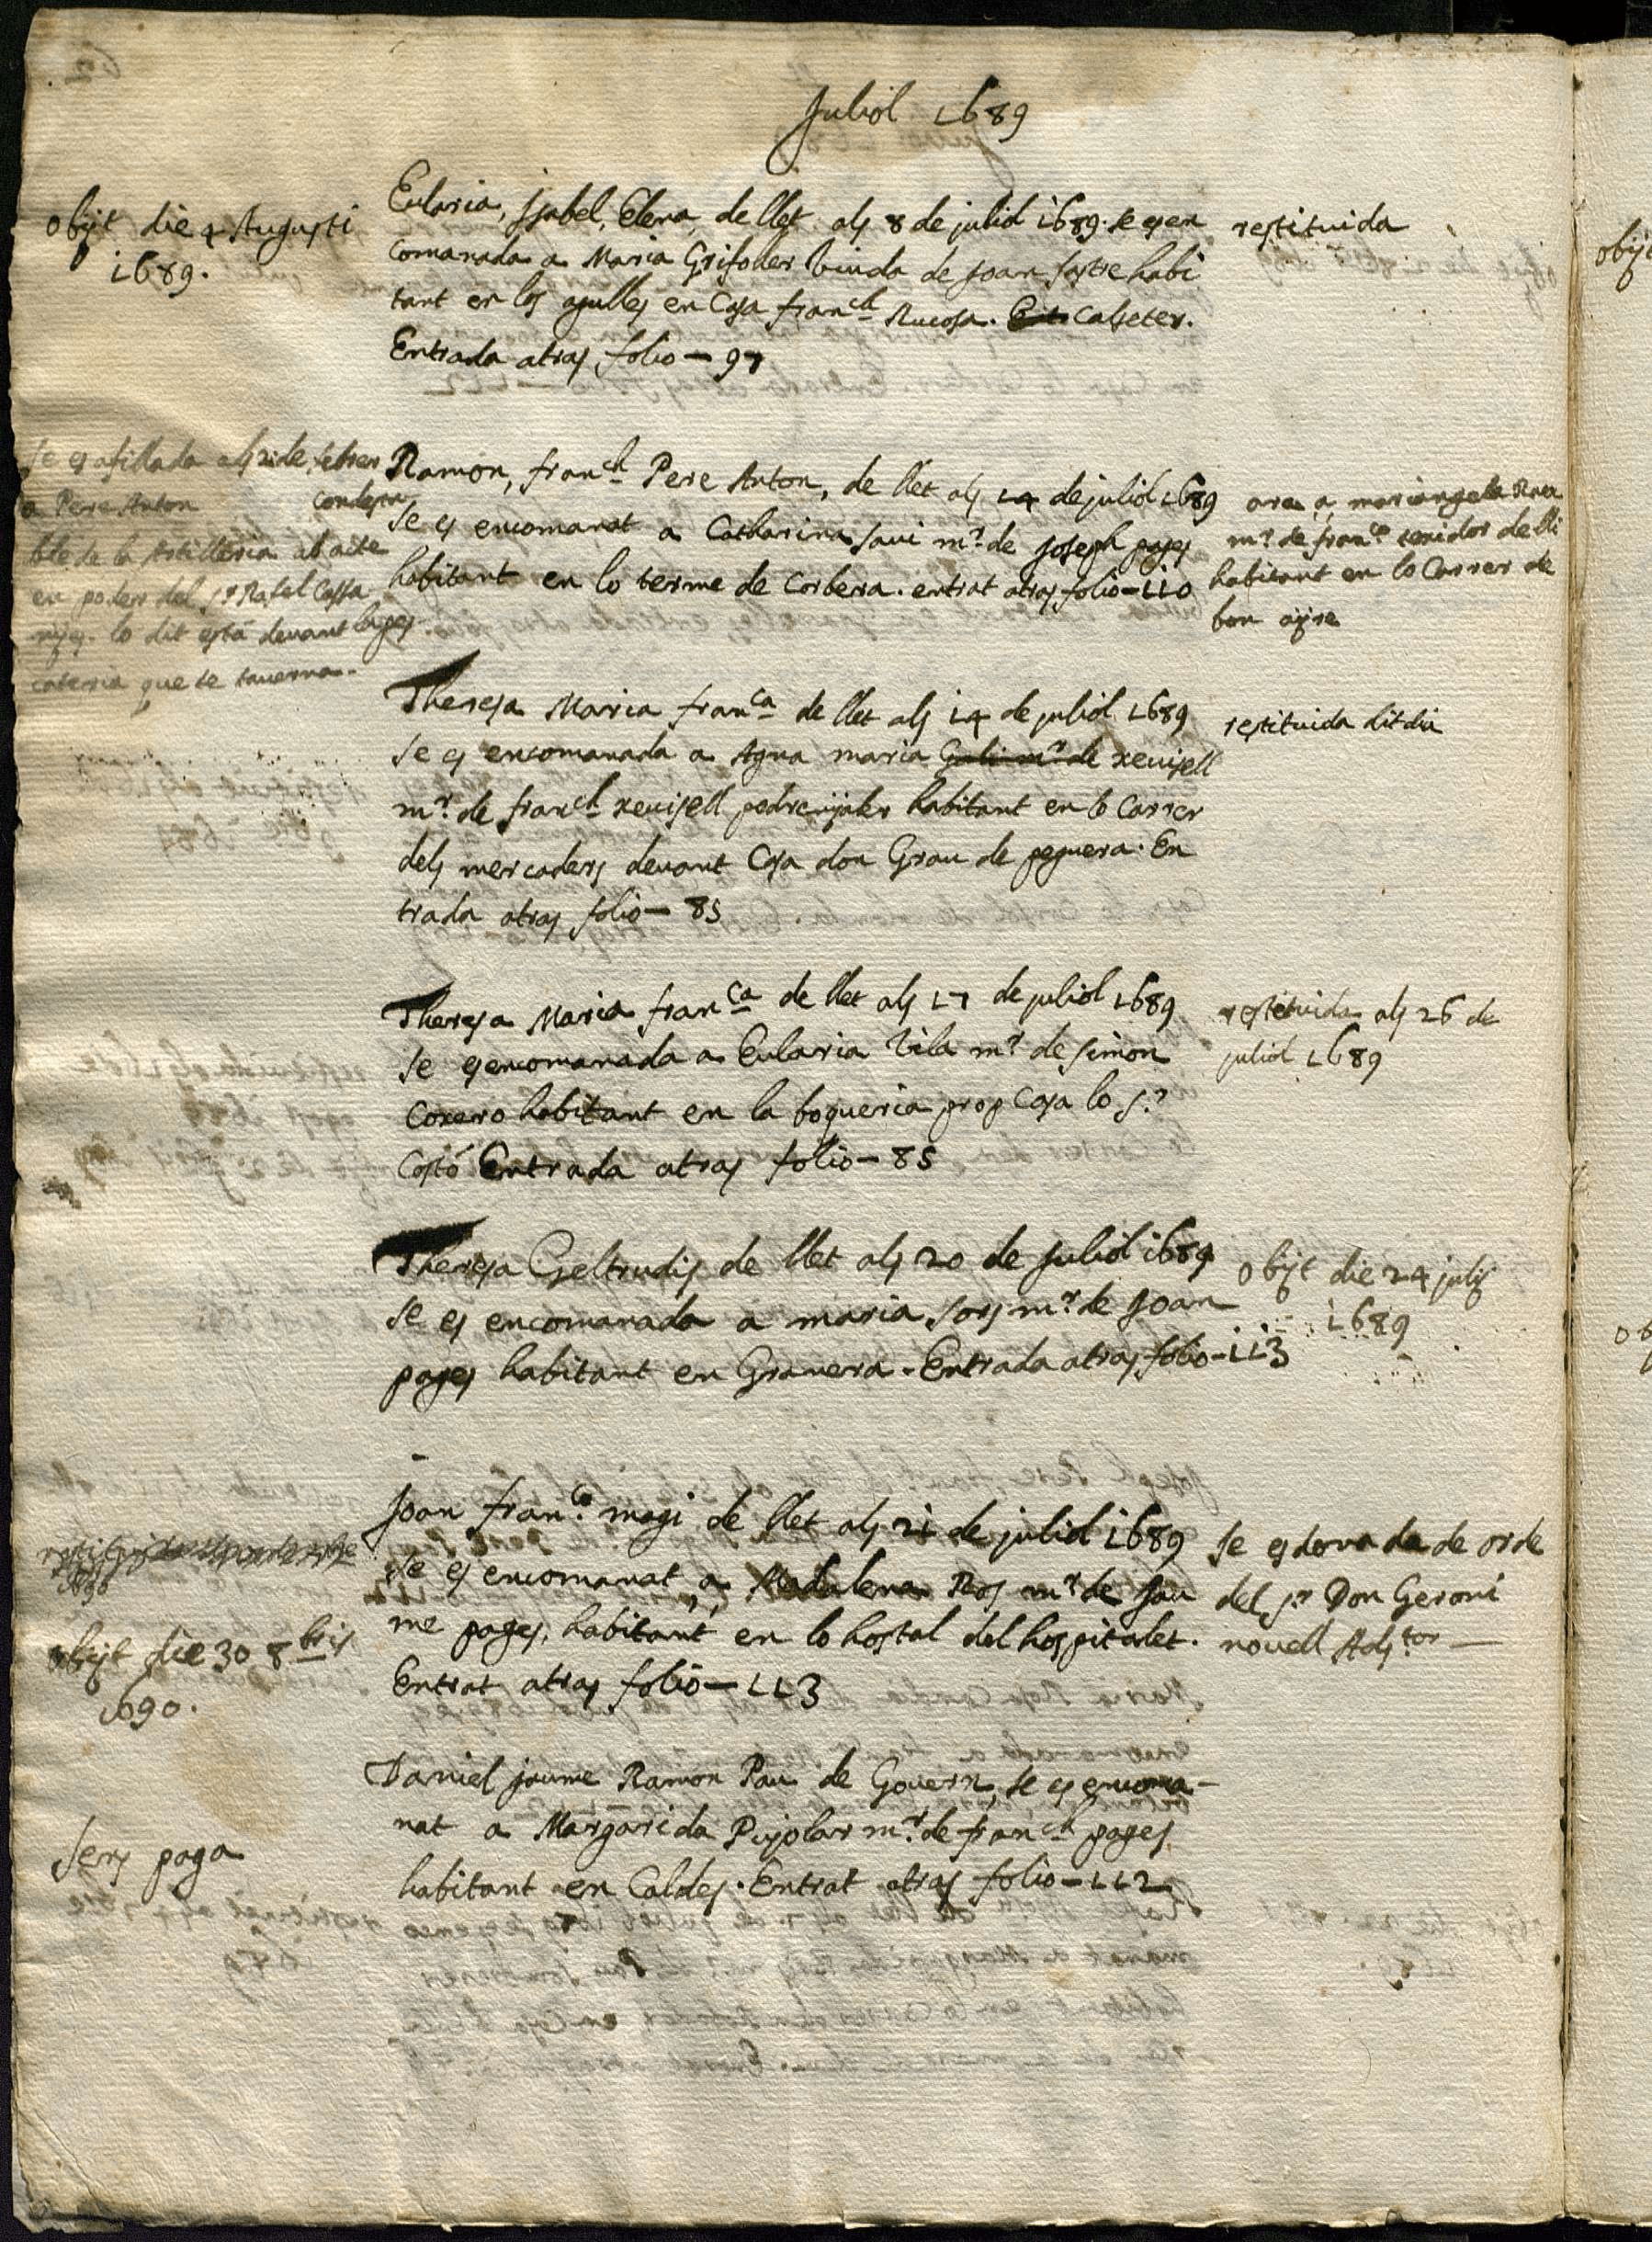 Juliol 1689
obijt die 4 Augusti
1689.
Eularia, Isabel, Elena, de llet als 8 de juliol 1689. se es en
comanada a Maria Grifoller viuda de Joan sastre habi
tant en los agulles en Casa franch Rucosa. Calseter.
Entrada atras folio - 97
restituida
se es afillada als 2 de febrer
a Pere Anton
condesta
ble de la Artilleria ab acte
en poder del sr Rafel Cassa
nyes. lo dit está devant la pes
cateria que te taverna.
Ramon, franch Pere Anton, de llet als 14 de juliol 1689
se es encomanat a Catharina savi mr. de Joseph pages
habitant en lo terme de Corbera. entrat atras folio - 110
ara a mariangela
mr. de franco texidor de lli
habitant en lo Carrer de
bon ayre
Theresa Maria franca de llet als 14 de juliol 1689
se es encomanada a Agna maria Gali mr. de xeuisell
mr. de franch xeuisell habitant en lo Carrer
dels mercaders devant Casa don Grau de peguera. En
trada atras folio - 85
restituida dit dia
Theresa Maria franca de llet als 17 de juliol 1689
se es encomanada a Eularia Vila mr. de simon
Coxero habitant en la boqueria prop Casa lo sr.
Costó Entrada atras folio - 85
restituida als 26 de
juliol 1689
Theresa Geltrudis de llet als 20 de Juliol 1689
se es encomanada a maria sors mr. de Joan
pages habitant en Granera. Entrada atras folio - 113
obijt die 24 julij
1689
Joan franco. magi de llet als 21 de juliol 1689
se es encomanat, a Madalena Ros mr. de Jau
me pages, habitant en lo hostal del hospitalet.
Entrat atras folio - 113
obijt die 30 8bris
1690.
se es donada de orde
del sr Don Geroni
novell Adstor
Daniel jaume Ramon Pau de Govern, se es encoma-
nat a Margarida Pujolar mr. de franch pages
habitant en Caldes. Entrat atras folio - 112
sens paga